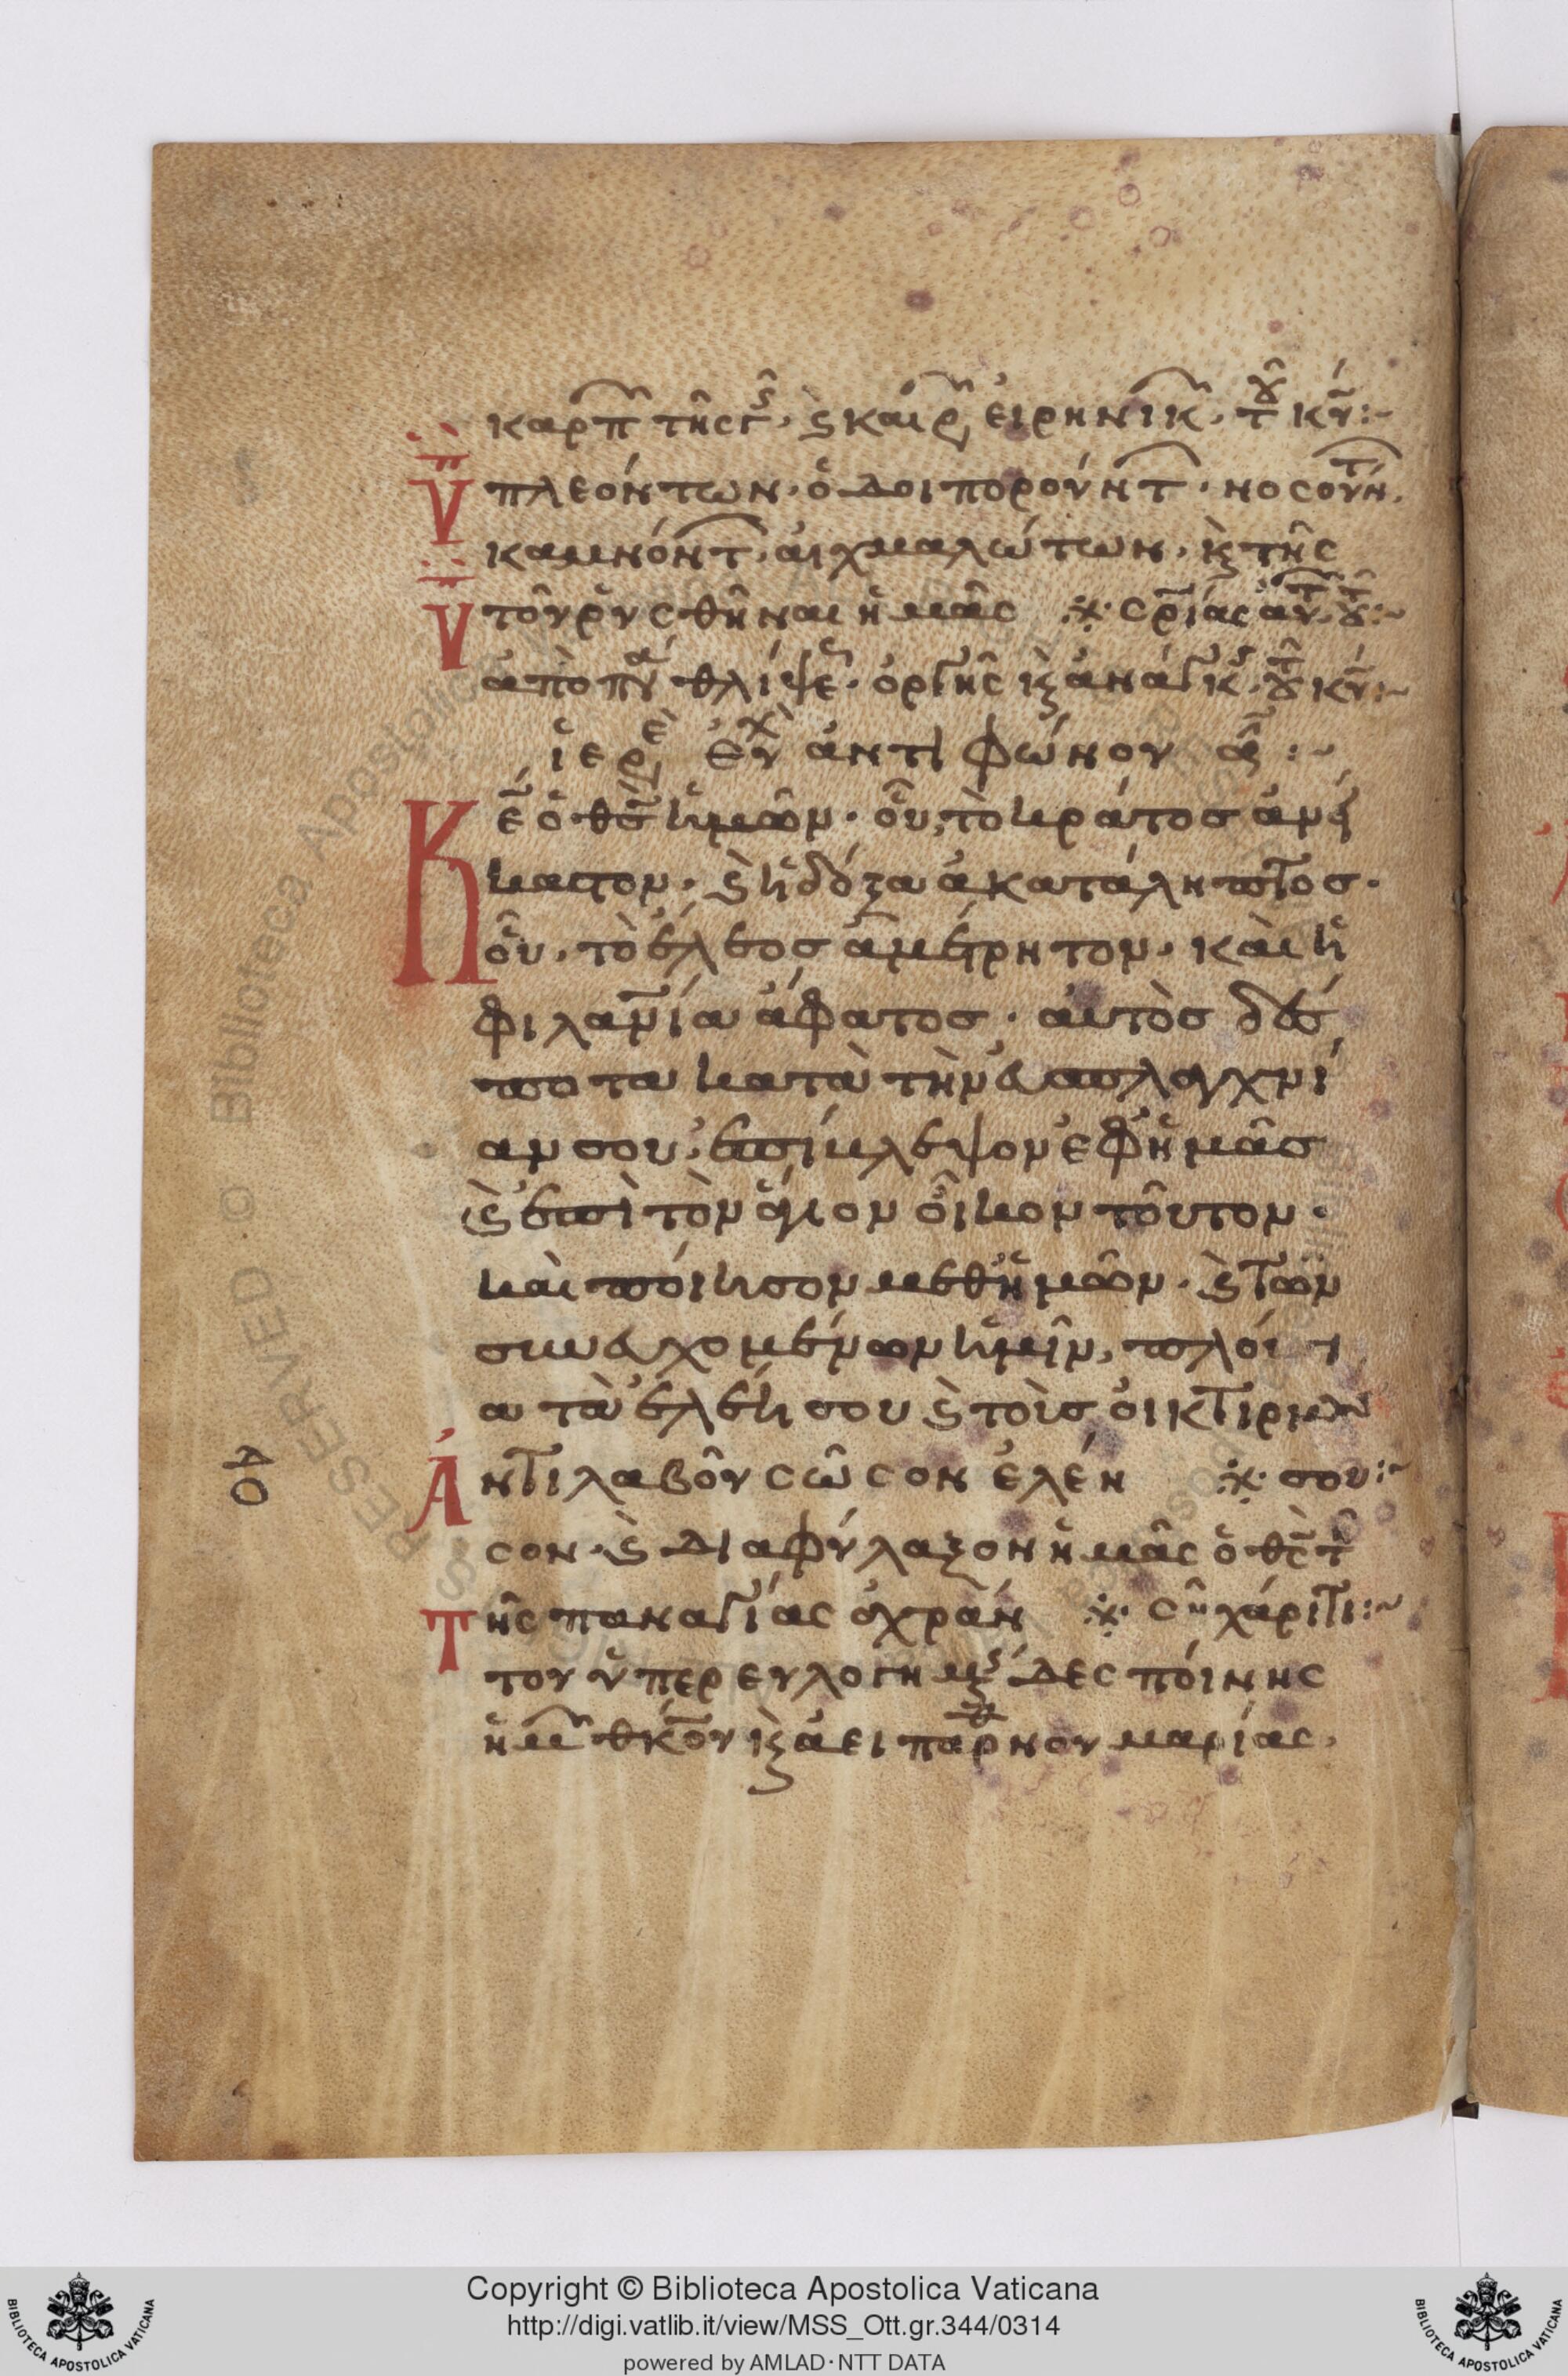 καρπ τῆς γ, ϗ καιρ εἰρηνικ, τοῦ κυ:~
Ὑ πλεόντων· ὁδοιπορούντ· νοσούντ,
καμνόντ, αἰχμαλώτων, κ τῆς
Ὑ τοῦ ῥυσθῆναι ἡμᾶς ※ σριας αὐτ τοῦ:~
ἀπὸ πα θλίψε· ὀργῆς κ ἀνάγκ· τοῦ κυ:~
ἱερε εὐχ ἀντιφώνου α:~
Κε ὁ θς ἡμῶν· οὗ, τὸ κράτος ἀνεί
καστον· ϗ ἡ δόξα ἀκατάληπτος·
οὗ, τὸ ἔλεος ἀμέτρητον· καὶ ἡ
φιλανία ἄφατος· αὐτὸς δέσ
ποτα κατὰ τὴν εὐσπλαγχνί
αν σου, ἐπίβλεψον ἐφ ἡμᾶς
ϗ ἐπὶ τὸν ἅγιον οἶκον τοῦτον·
καὶ ποίησον μεθ ἡμῶν· ϗ τῶν
συνευχομένων ἡμῖν, πλούσι
α τὰ ἐλέη σου ϗ τοὺς οἰκτιρμούς
Ἀντιλαβοῦ σῶσον ἐλέη ※ σου:~
σον· ϗ διαφύλαξον ἡμᾶς ὁ θς τῆ
Τῆς παναγίας ἀχράν ※ σῆ χάριτι:~
του ὑπερευλογημ δεσποίνης
ἡμ θκου κ ἀειπαρθνου μαρίας,
ΑΟ
RESERVED © Biblioteca Apostolica
Copyright © Biblioteca Apostolica Vaticana
http://digi.vatlib.it/view/MSS_Ott.gr.344/0314
powered by AMLAD · NTT DATA
BIBLIOTECA APOSTOLICA VATICANA
BIBLIOTECA APOSTOLICA VATICANA